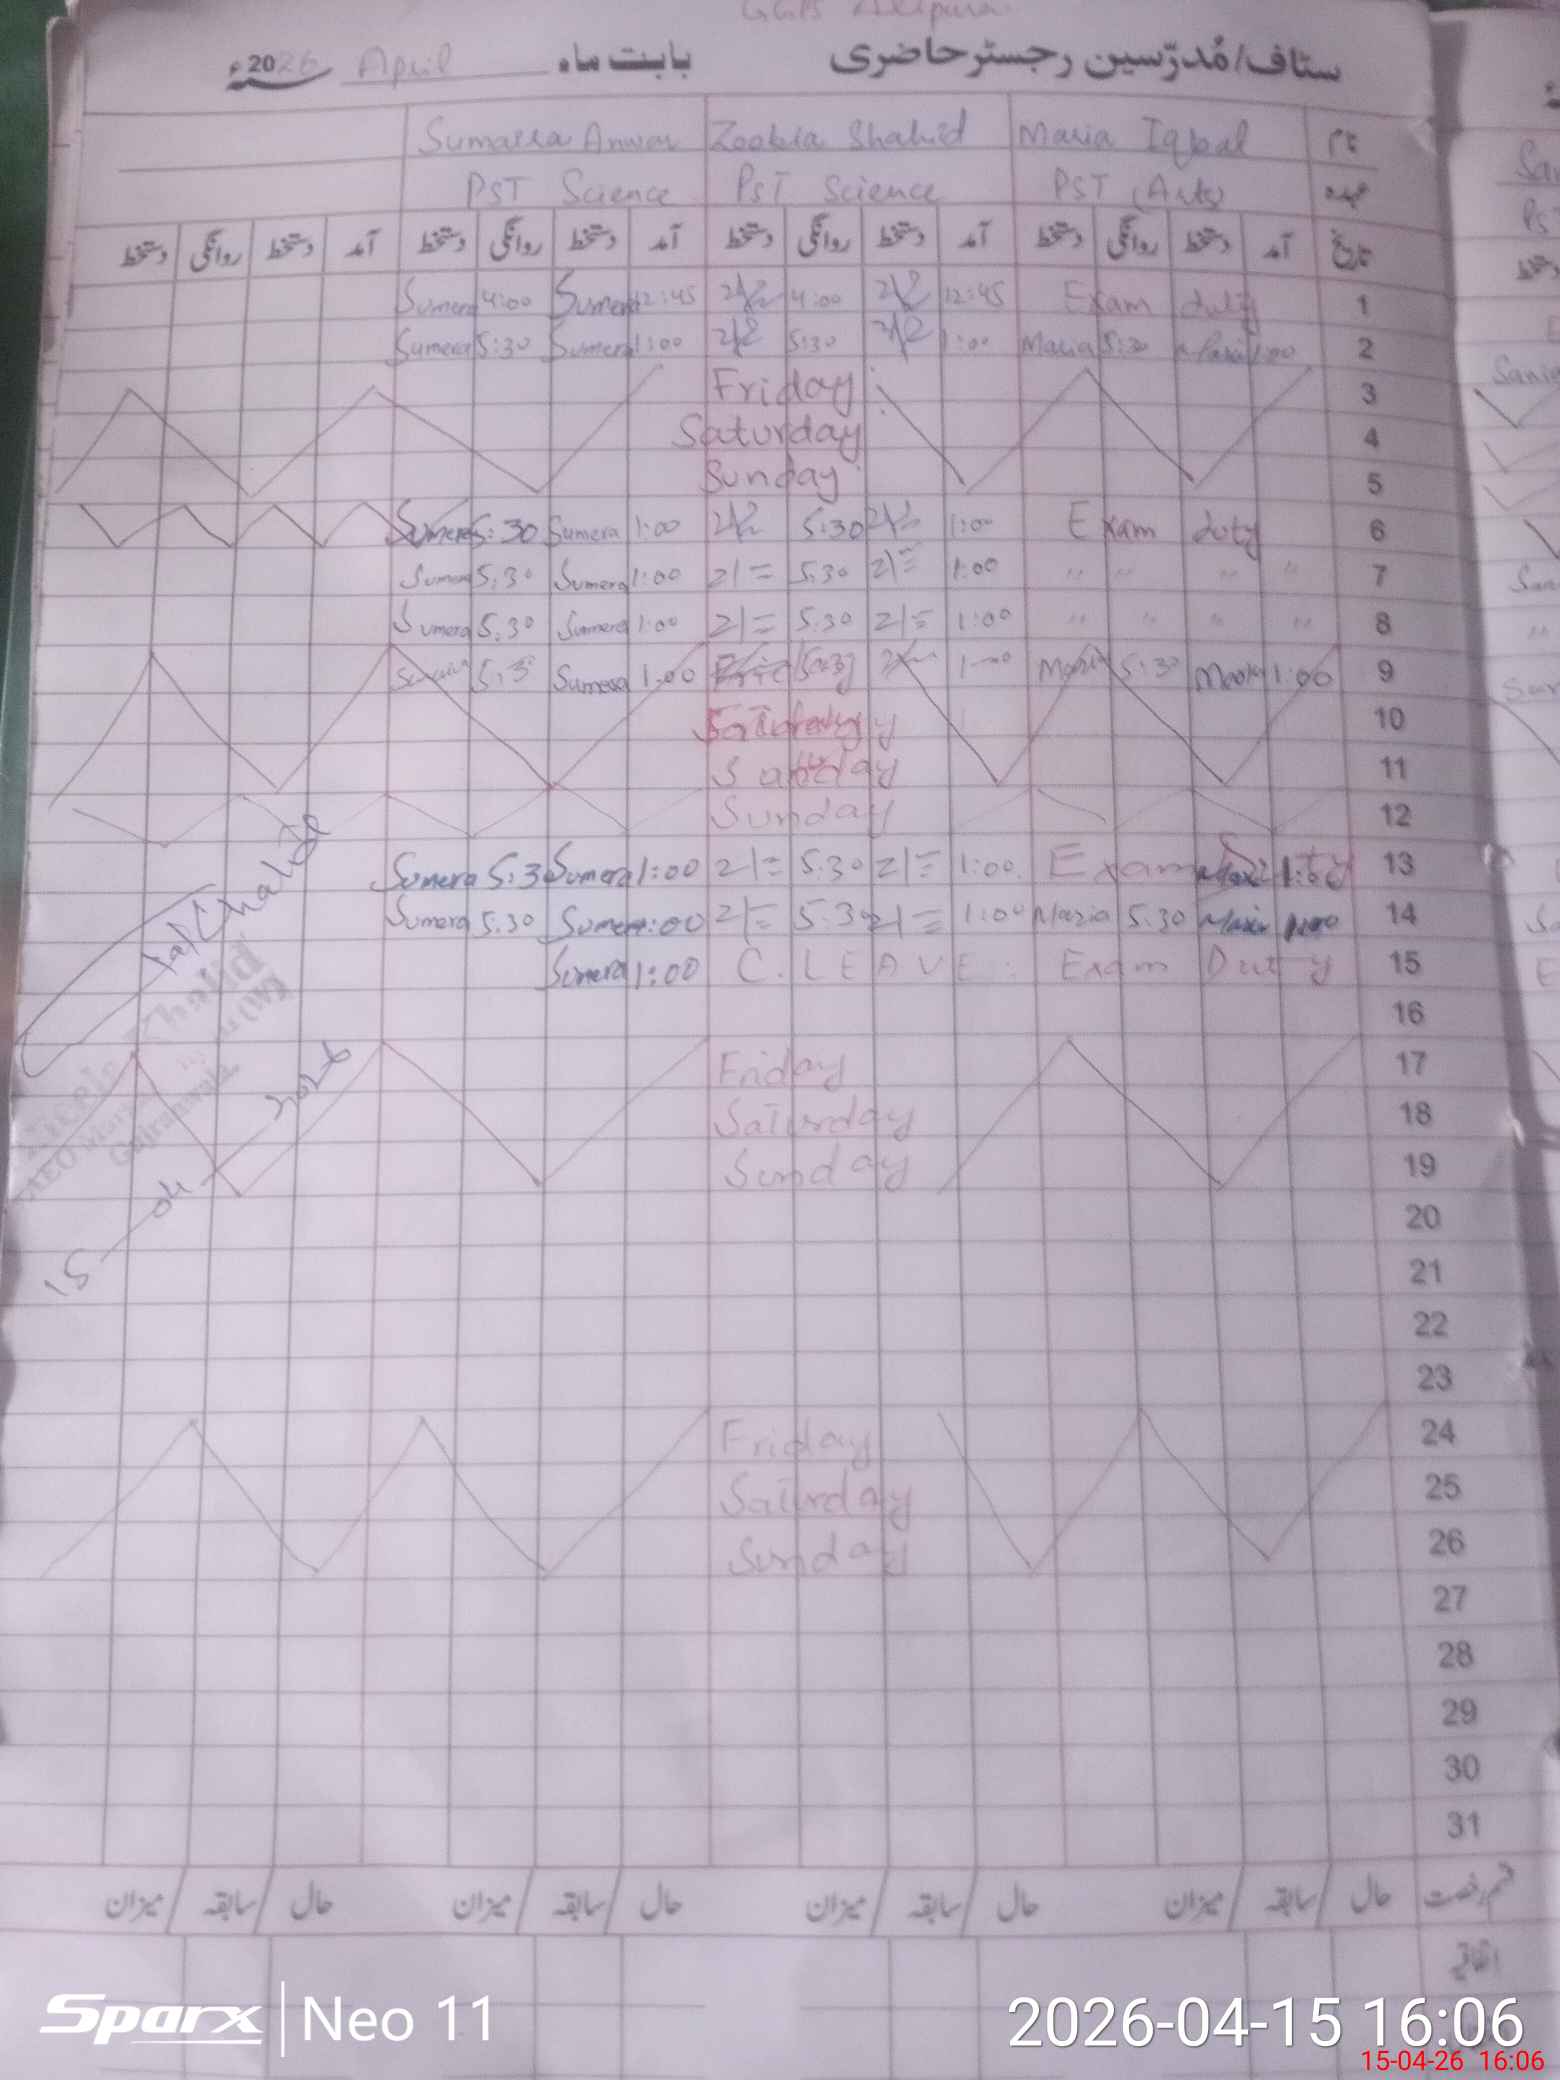 GGPS Alipura
ستاف/مُدرّسین رجسٹر حاضری بابت ماہ April 2026ء
نام Maria Iqbal Zoobia Shahid Sumaira Anwar
عہدہ PST (Arts) PST Science PST Science
تاریخ آمد دستخط روانگی دستخط آمد دستخط روانگی دستخط آمد دستخط روانگی دستخط آمد دستخط روانگی دستخط
Sumera 4:00 Sumera 12:45 4:00 12:45 Exam duty 1
Sumera 5:30 Sumera 1:00 5:30 1:00 Maria 5:30 Maria 1:00 2
Friday 3
Saturday 4
Sunday 5
Sumera 5:30 Sumera 1:00 5:30 1:00 Exam duty 6
Sumera 5:30 Sumera 1:00 5:30 1:00 " " " " 7
Sumera 5:30 Sumera 1:00 5:30 1:00 " " " " 8
5:30 Sumera 1:00 5:30 1:00 Maria 5:30 1:00 9
10
11
Sunday 12
Sumera 5:30 Sumera 1:00 5:30 1:00. Exam 13
Sumera 5:30 Sumera 1:00 5:30 1:00 Maria 5:30 Maria 1:00 14
Sumera 1:00 C. LEAVE Exam Duty 15
16
Friday 17
Saturday 18
Sunday 19
Khalid
AEO
Gujranwala
15-04-2026
20
21
22
23
Friday 24
Saturday 25
Sunday 26
27
28
29
30
31
قسم رخصت حال / سابقہ / میزان حال / سابقہ / میزان حال / سابقہ / میزان حال / سابقہ / میزان
اتفاقی
Sparx | Neo 11
2026-04-15 16:06
15-04-26 16:06